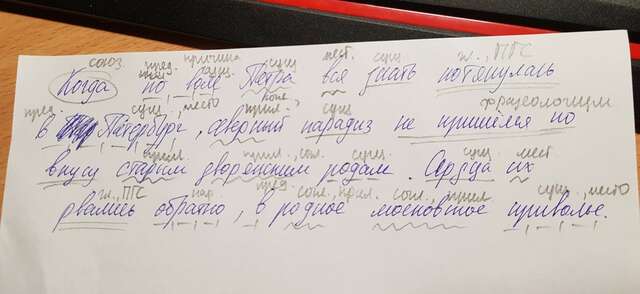 союз пред. причина сущ. мест. сущ. гл., ПГС
Когда по воле Петра вся знать потянулась
пред. сущ., место прил. сущ. фразеологизм
в Петербург, северный парадиз не пришелся по
прил. прил., согл. сущ. сущ. мест.
вкусу старым дворянским родам. Сердца их
гл., ПГС нар. пред. согл., прил. согл., прил. сущ., место
рвались обратно, в родное московское приволье.